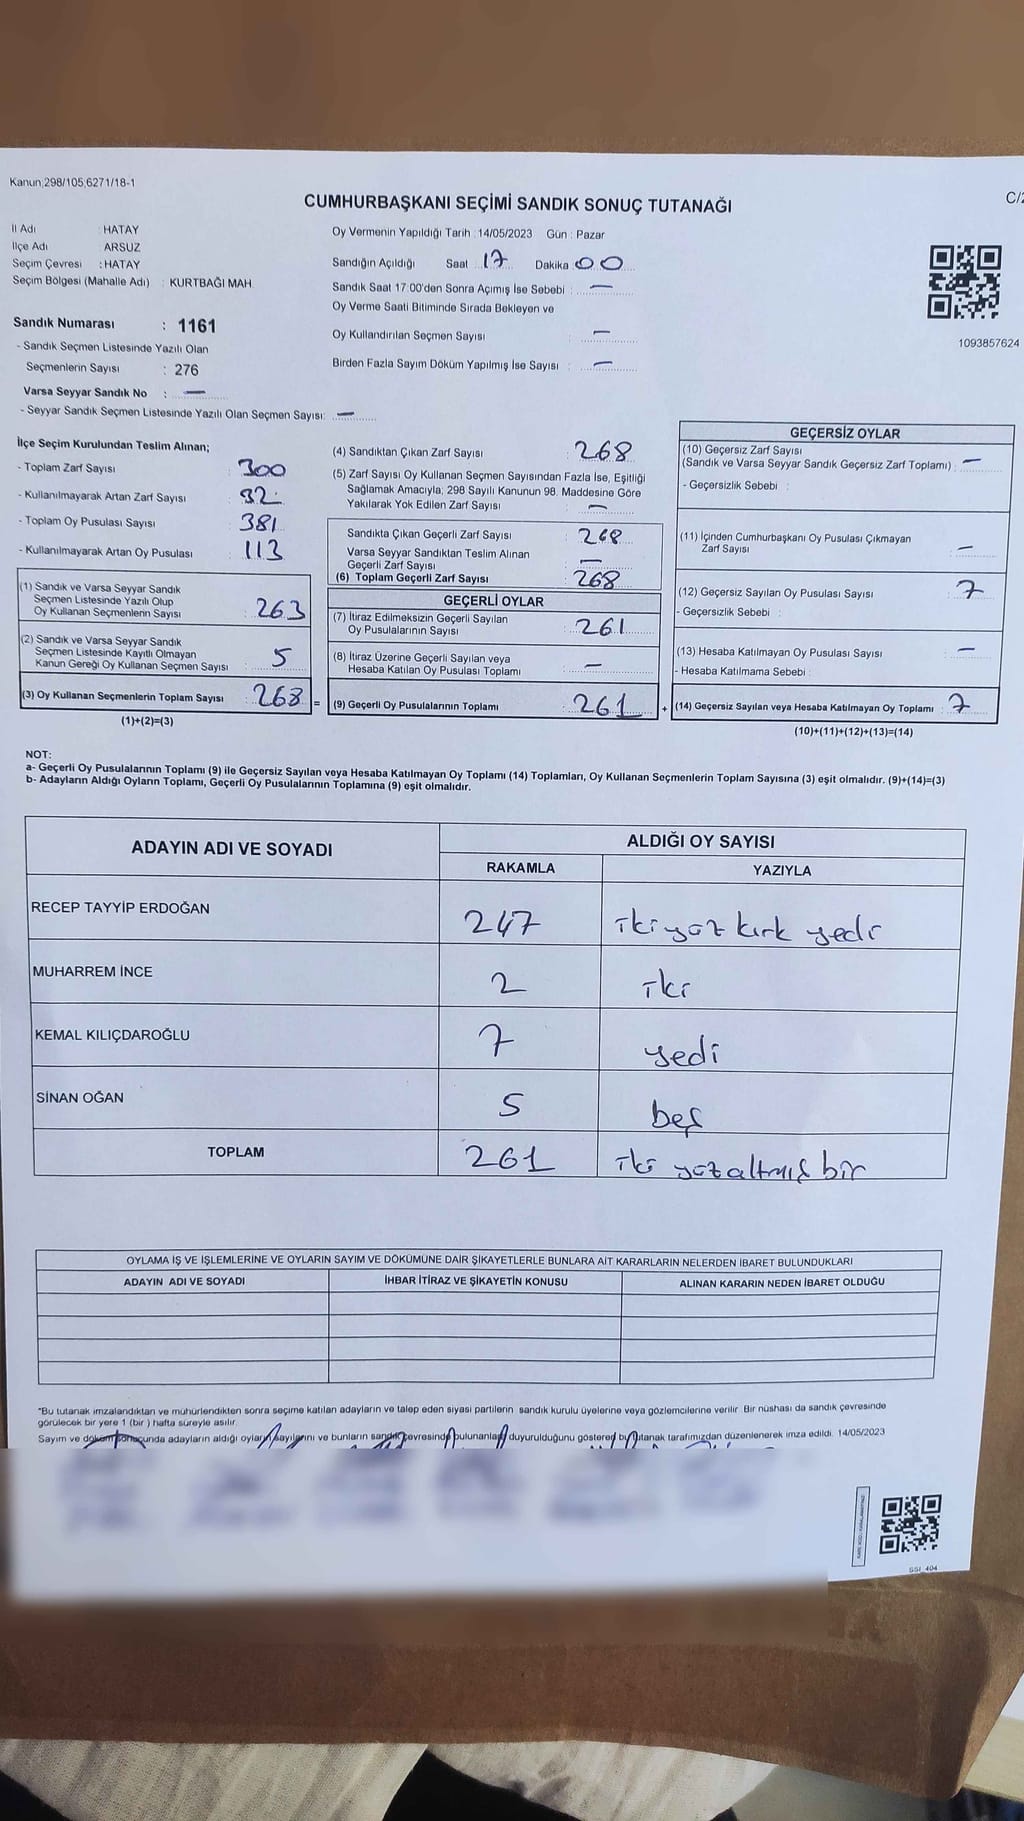 Kanun;298/105;6271/18-1
CUMHURBAŞKANI SEÇİMİ SANDIK SONUÇ TUTANAĞI
C/2
İl Adı : HATAY
İlçe Adı ARSUZ
Seçim Çevresi : HATAY
Seçim Bölgesi (Mahalle Adı) : KURTBAĞI MAH.
Sandık Numarası : 1161
- Sandık Seçmen Listesinde Yazılı Olan
Seçmenlerin Sayısı : 276
Varsa Seyyar Sandık No : —
- Seyyar Sandık Seçmen Listesinde Yazılı Olan Seçmen Sayısı: —
Oy Vermenin Yapıldığı Tarih : 14/05/2023 Gün : Pazar
Sandığın Açıldığı Saat 17 Dakika 00
Sandık Saat 17:00'den Sonra Açımış İse Sebebi : —
Oy Verme Saati Bitiminde Sırada Bekleyen ve
Oy Kullandırılan Seçmen Sayısı : —
Birden Fazla Sayım Döküm Yapılmış İse Sayısı : —
1093857624
İlçe Seçim Kurulundan Teslim Alınan;
- Toplam Zarf Sayısı : 300
- Kullanılmayarak Artan Zarf Sayısı : 32
- Toplam Oy Pusulası Sayısı : 381
- Kullanılmayarak Artan Oy Pusulası : 113
(1) Sandık ve Varsa Seyyar Sandık
Seçmen Listesinde Yazılı Olup
Oy Kullanan Seçmenlerin Sayısı : 263
(2) Sandık ve Varsa Seyyar Sandık
Seçmen Listesinde Kayıtlı Olmayan
Kanun Gereği Oy Kullanan Seçmen Sayısı : 5
(3) Oy Kullanan Seçmenlerin Toplam Sayısı : 268 =
(1)+(2)=(3)
(4) Sandıktan Çıkan Zarf Sayısı : 268
(5) Zarf Sayısı Oy Kullanan Seçmen Sayısından Fazla İse, Eşitliği
Sağlamak Amacıyla; 298 Sayılı Kanunun 98. Maddesine Göre
Yakılarak Yok Edilen Zarf Sayısı : —
Sandıkta Çıkan Geçerli Zarf Sayısı : 268
Varsa Seyyar Sandıktan Teslim Alınan
Geçerli Zarf Sayısı : —
(6) Toplam Geçerli Zarf Sayısı : 268
GEÇERLİ OYLAR
(7) İtiraz Edilmeksizin Geçerli Sayılan
Oy Pusulalarının Sayısı : 261
(8) İtiraz Üzerine Geçerli Sayılan veya
Hesaba Katılan Oy Pusulası Toplamı : —
(9) Geçerli Oy Pusulalarının Toplamı : 261 +
GEÇERSİZ OYLAR
(10) Geçersiz Zarf Sayısı
(Sandık ve Varsa Seyyar Sandık Geçersiz Zarf Toplamı) : —
- Geçersizlik Sebebi :
(11) İçinden Cumhurbaşkanı Oy Pusulası Çıkmayan
Zarf Sayısı : —
(12) Geçersiz Sayılan Oy Pusulası Sayısı : 7
- Geçersizlik Sebebi :
(13) Hesaba Katılmayan Oy Pusulası Sayısı : —
- Hesaba Katılmama Sebebi :
(14) Geçersiz Sayılan veya Hesaba Katılmayan Oy Toplamı : 7
(10)+(11)+(12)+(13)=(14)
NOT:
a- Geçerli Oy Pusulalarının Toplamı (9) ile Geçersiz Sayılan veya Hesaba Katılmayan Oy Toplamı (14) Toplamları, Oy Kullanan Seçmenlerin Toplam Sayısına (3) eşit olmalıdır. (9)+(14)=(3)
b- Adayların Aldığı Oyların Toplamı, Geçerli Oy Pusulalarının Toplamına (9) eşit olmalıdır.
ADAYIN ADI VE SOYADI ALDIĞI OY SAYISI
RAKAMLA YAZIYLA
RECEP TAYYİP ERDOĞAN 247 iki yüz kırk yedi
MUHARREM İNCE 2 iki
KEMAL KILIÇDAROĞLU 7 yedi
SİNAN OĞAN 5 beş
TOPLAM 261 iki yüz altmış bir
OYLAMA İŞ VE İŞLEMLERİNE VE OYLARIN SAYIM VE DÖKÜMÜNE DAİR ŞİKAYETLERLE BUNLARA AİT KARARLARIN NELERDEN İBARET BULUNDUKLARI
ADAYIN ADI VE SOYADI İHBAR İTİRAZ VE ŞİKAYETİN KONUSU ALINAN KARARIN NEDEN İBARET OLDUĞU
"Bu tutanak imzalandıktan ve mühürlendikten sonra seçime katılan adayların ve talep eden siyasi partilerin sandık kurulu üyelerine veya gözlemcilerine verilir. Bir nüshası da sandık çevresinde
görülecek bir yere 1 (bir ) hafta süreyle asılır.
Sayım ve döküm sonucunda adayların aldığı oyların sayılarını ve bunların sandık çevresinde bulunanlara duyurulduğunu gösteren bu tutanak tarafımızdan düzenlenerek imza edildi. 14/05/2023
SSI_404